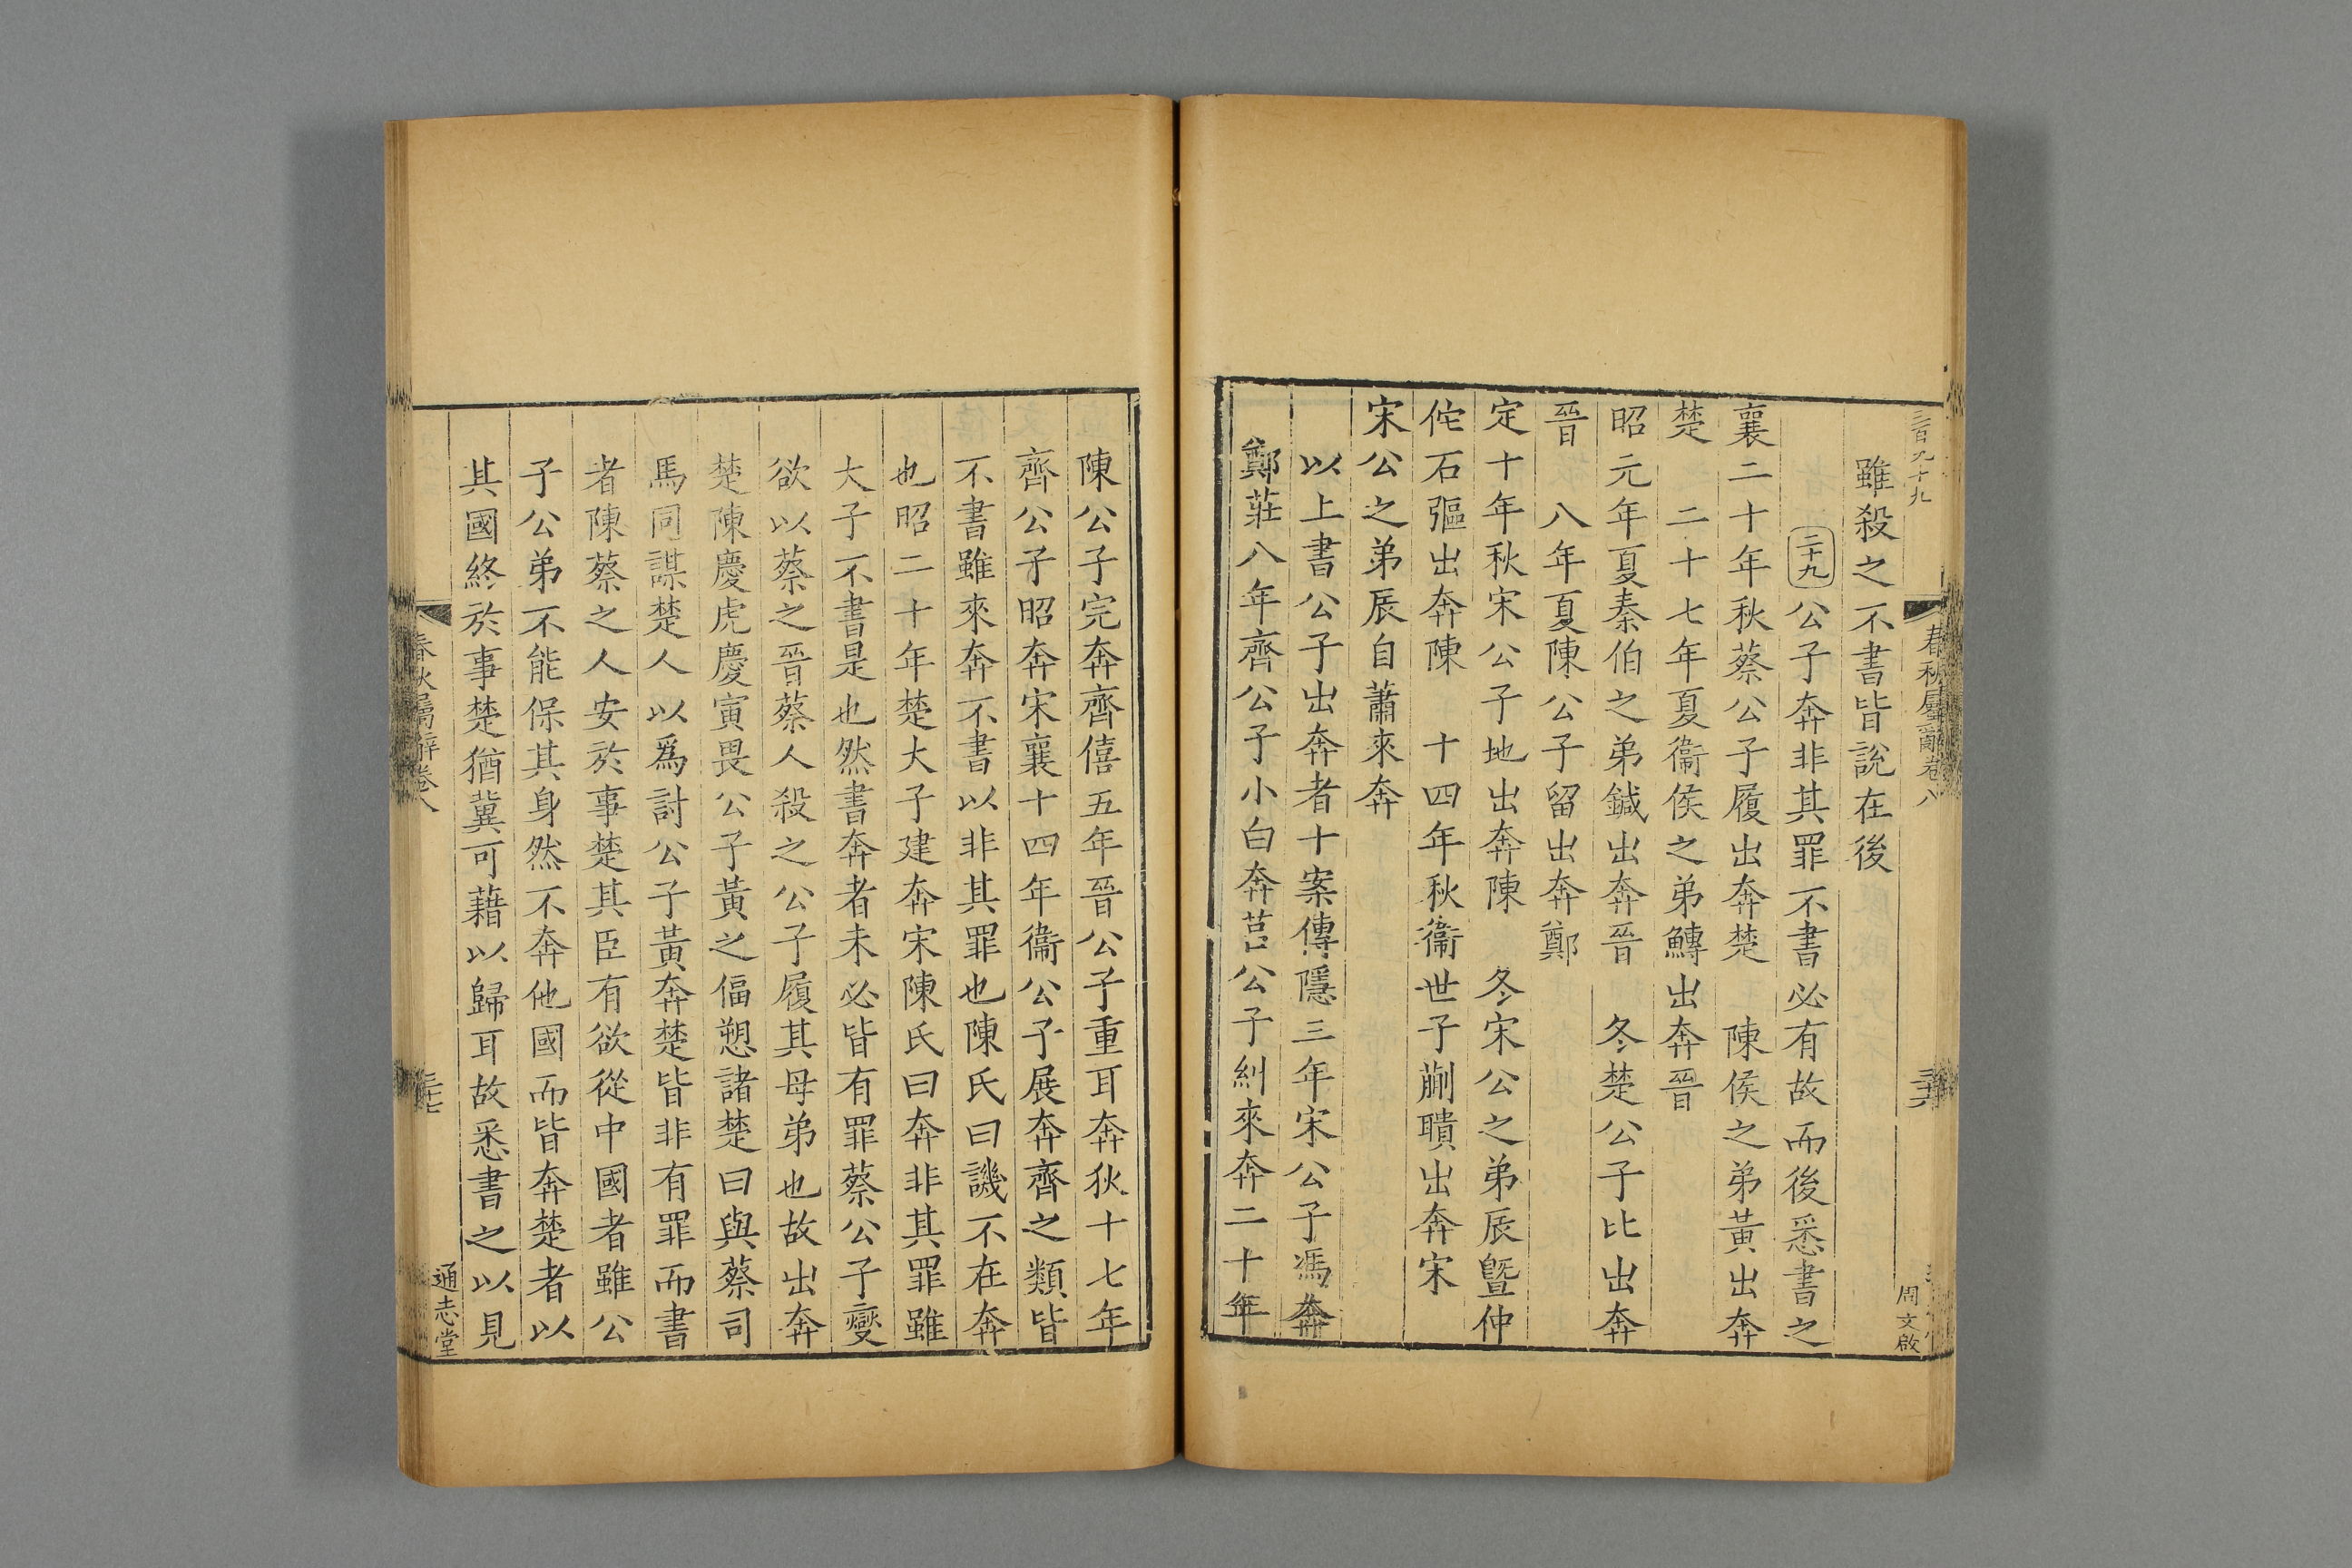 三百九十九
春秋屬辭卷八
三十六
周文啟
雖殺之不書皆說在後
二十九 公子奔非其罪不書必有故而後悉書之
襄二十年秋蔡公子履出奔楚 陳侯之弟黃出奔
楚 二十七年夏衞侯之弟鱄出奔晉
昭元年夏秦伯之弟鍼出奔晉 冬楚公子比出奔
晉 八年夏陳公子留出奔鄭
定十年秋宋公子地出奔陳 冬宋公之弟辰暨仲
佗石彄出奔陳 十四年秋衞世子蒯聵出奔宋
宋公之弟辰自蕭來奔
以上書公子出奔者十案傳隱三年宋公子馮奔
鄭莊八年齊公子小白奔莒公子糾來奔二十年
陳公子完奔齊僖五年晉公子重耳奔狄十七年
齊公子昭奔宋襄十四年衞公子展奔齊之類皆
不書雖來奔不書以非其罪也陳氏曰譏不在奔
也昭二十年楚大子建奔宋陳氏曰奔非其罪雖
大子不書是也然書奔者未必皆有罪蔡公子燮
欲以蔡之晉蔡人殺之公子履其母弟也故出奔
楚陳慶虎慶寅畏公子黃之偪愬諸楚曰與蔡司
馬同謀楚人以為討公子黃奔楚皆非有罪而書
者陳蔡之人安於事楚其臣有欲從中國者雖公
子公弟不能保其身然不奔他國而皆奔楚者以
其國終於事楚猶冀可藉以歸耳故悉書之以見
春秋屬辭卷八
三十七
通志堂